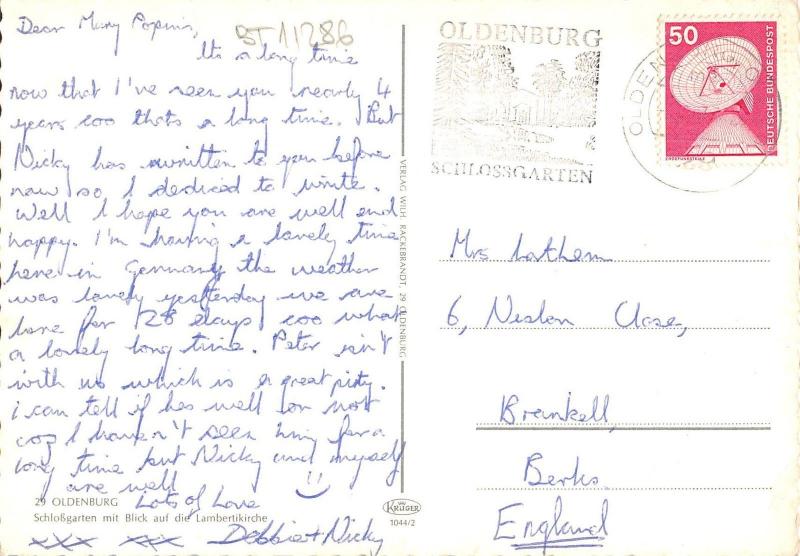 Dear Mary Popins,
ST11286
Its a long time
now that I've seen you nearly 4
years coo thats a long time. But
Nicky has awritten to you before
now so I dediced to write.
Well I hope you are well and
happy. I'm having a lovely time
here in Germany the weather
was lovely yesterday we are
here for 28 days coo what
a lovely long time. Peter isn't
with us which is a great pity.
i can tell if hes well or not
coz I haven't seen him for a
long time but Nicky and myself
are well
Lots of Love
Debbie + Nicky
xxx xxx
29 OLDENBURG
Schloßgarten mit Blick auf die Lambertikirche
VERLAG WILH. RACKEBRANDT, 29 OLDENBURG
KRÜGER
1044/2
OLDENBURG
SCHLOSSGARTEN
OLDEN
50
DEUTSCHE BUNDESPOST
ERDEFUNKSTELLE
Mrs Lathem
6, Close,
Berks
England